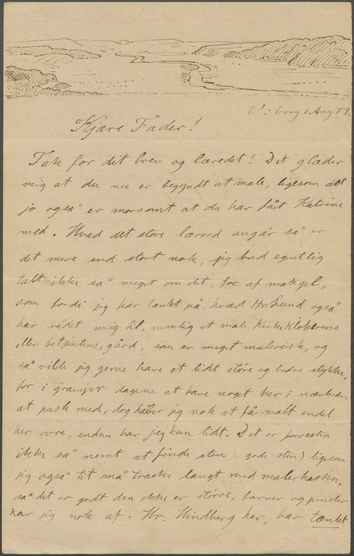 Kjære Fader!
Tak for det brev og lærredet! Det glæder
mig at du nu er begyndt at male, ligesom det
jo også er morsomt at du har fået Katrine
med. Hvad det store lærred angår så er
det mere end stort nok, jeg brød egentlig
ikke så meget om det,
som fordi jeg har tænkt på, hvad Hr. Lund også
har rådet mig til, nemlig at male
eller gård, som er meget malerisk, og
så vilde jeg gerne have et lidt større og bedre stykke,
for i dagene at have noget her i nærheden
at pusle med, dog håber jeg nok at få malt endel
her ovre, endnu har jeg kun lidt. Det er forresten
ikke så nemt at finde sten ligesom
jeg også tit må traske langt med malerkassen,
så det er godt den ikke er større, farver og pensler
har jeg nok af. Hr. Hindberg her, har tænkt